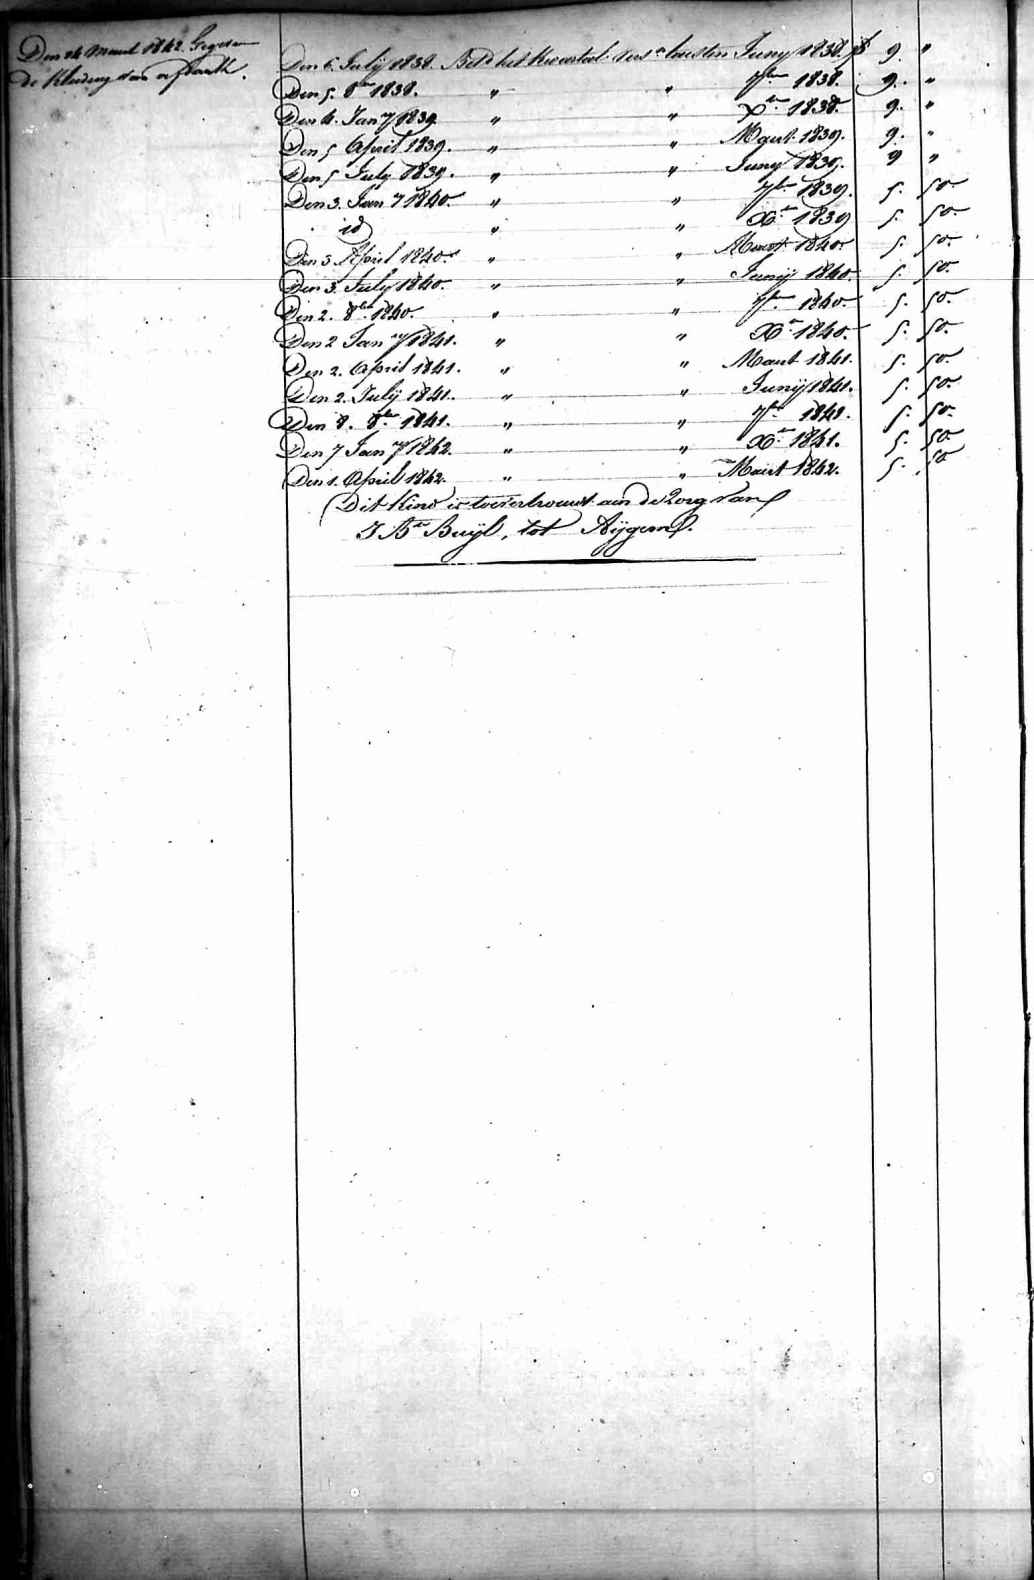 Den 24 Maart 1842. Gegeven
de Kleding van
Den 6. July 1838. Bet.d het Kwartaal Juny 1838. 9. "
Den 5. 8ber 1838. " " 7ber 1838. 9. "
Den 4. Jany 1839 " " Xber 1838. 9. "
Den 5 April 1839. " " Maart 1839. 9. "
Den 5 July 1839. " " Juny 1839. 9 "
Den 3. Jany 1840. " " 7ber 1839. 5. 50
id " " Xber 1839 5. 50.
Den 3 April 1840. " " Maart 1840 5. 50.
Den 3. July 1840. " " Junij 1840 5. 50.
Den 2. 8ber 1840. " " 7ber 1840 5. 50.
Den 2 Jany 1841. " " Xber 1840. 5. 50.
Den 2. April 1841. " " Maart 1841. 5. 50
Den 2. Julij 1841. " " Junij 1841. 5. 50
Den 8. 8ber 1841. " " 7ber 1841. 5. 50.
Den 7 Jany 1842. " " Xber 1841. 5. 50
Den 1. April 1842. " " Maart 1842. 5. 50
Dit Kind is toevertrouwt aan de Zorg van
J Bte Buijl, tot Aijgem.